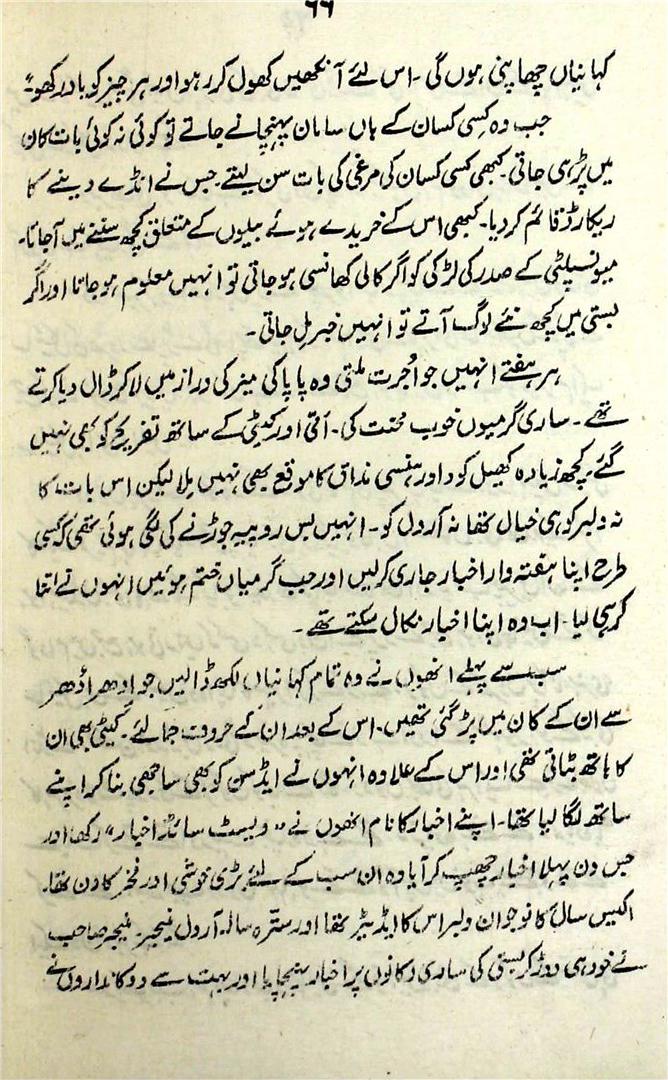 ۶۶
کہانیاں چھاپنی ہوں گی۔ اس لئے آنکھیں کھول کر رہو اور ہر چیز کو یاد رکھو۔"
جب وہ کسی کسان کے ہاں سامان پہنچانے جاتے تو کوئی نہ کوئی بات کان
میں پڑہی جاتی۔ کبھی کسی کسان کی مرغی کی بات سن لیتے۔ جس نے انڈے دینے کا
ریکارڈ قائم کر دیا۔ کبھی اس کے خریدے ہوئے بیلوں کے متعلق کچھ سننے میں آجاتا۔
میونسپلٹی کے صدر کی لڑکی کو اگر کالی کھانسی ہو جاتی تو انہیں معلوم ہو جاتا اور اگر
بستی میں کچھ نئے لوگ آتے تو انہیں خبر مل جاتی۔
ہر ہفتے انہیں جو اُجرت ملتی وہ پاپا کی میز کی دراز میں لا کر ڈال دیا کرتے
تھے۔ ساری گرمیوں خوب محنت کی۔ امّی اور کیٹی کے ساتھ تفریح کو بھی نہیں
گئے۔ کچھ زیادہ کھیل کود اور ہنسی مذاق کا موقع بھی نہیں ملا لیکن اس بات کا
نہ ولبر کو ہی خیال تھا نہ آرول کو۔ انہیں بس روپیہ جوڑنے کی لگی ہوئی تھی کہ کسی
طرح اپنا ہفتہ وار اخبار جاری کرلیں اور جب گرمیاں ختم ہوئیں انہوں نے اتنا
کر ہی لیا۔ اب وہ اپنا اخبار نکال سکتے تھے۔
سب سے پہلے انھوں نے وہ تمام کہانیاں لکھ ڈالیں جو اِدھر اُدھر
سے ان کے کان میں پڑ گئی تھیں۔ اس کے بعد ان کے حروف جمالئے۔ کیٹی بھی ان
کا ہاتھ بٹاتی تھی اور اس کے علاوہ انہوں نے ایڈسن کو بھی ساجھی بنا کر اپنے
ساتھ لگا لیا تھا۔ اپنے اخبار کا نام انھوں نے "ویسٹ سائڈ اخبار" رکھا اور
جس دن پہلا اخبار چھپ کر آیا وہ ان سب کے لئے بڑی خوشی اور فخر کا دن تھا۔
اکیس سال کا نوجوان ولبر اس کا ایڈیٹر تھا اور سترہ سالہ آرول منیجر۔ منیجر صاحب
نے خود ہی دوڑ کر بستی کی ساری دکانوں پر اخبار پہنچایا اور بہت سے دوکانداروں نے